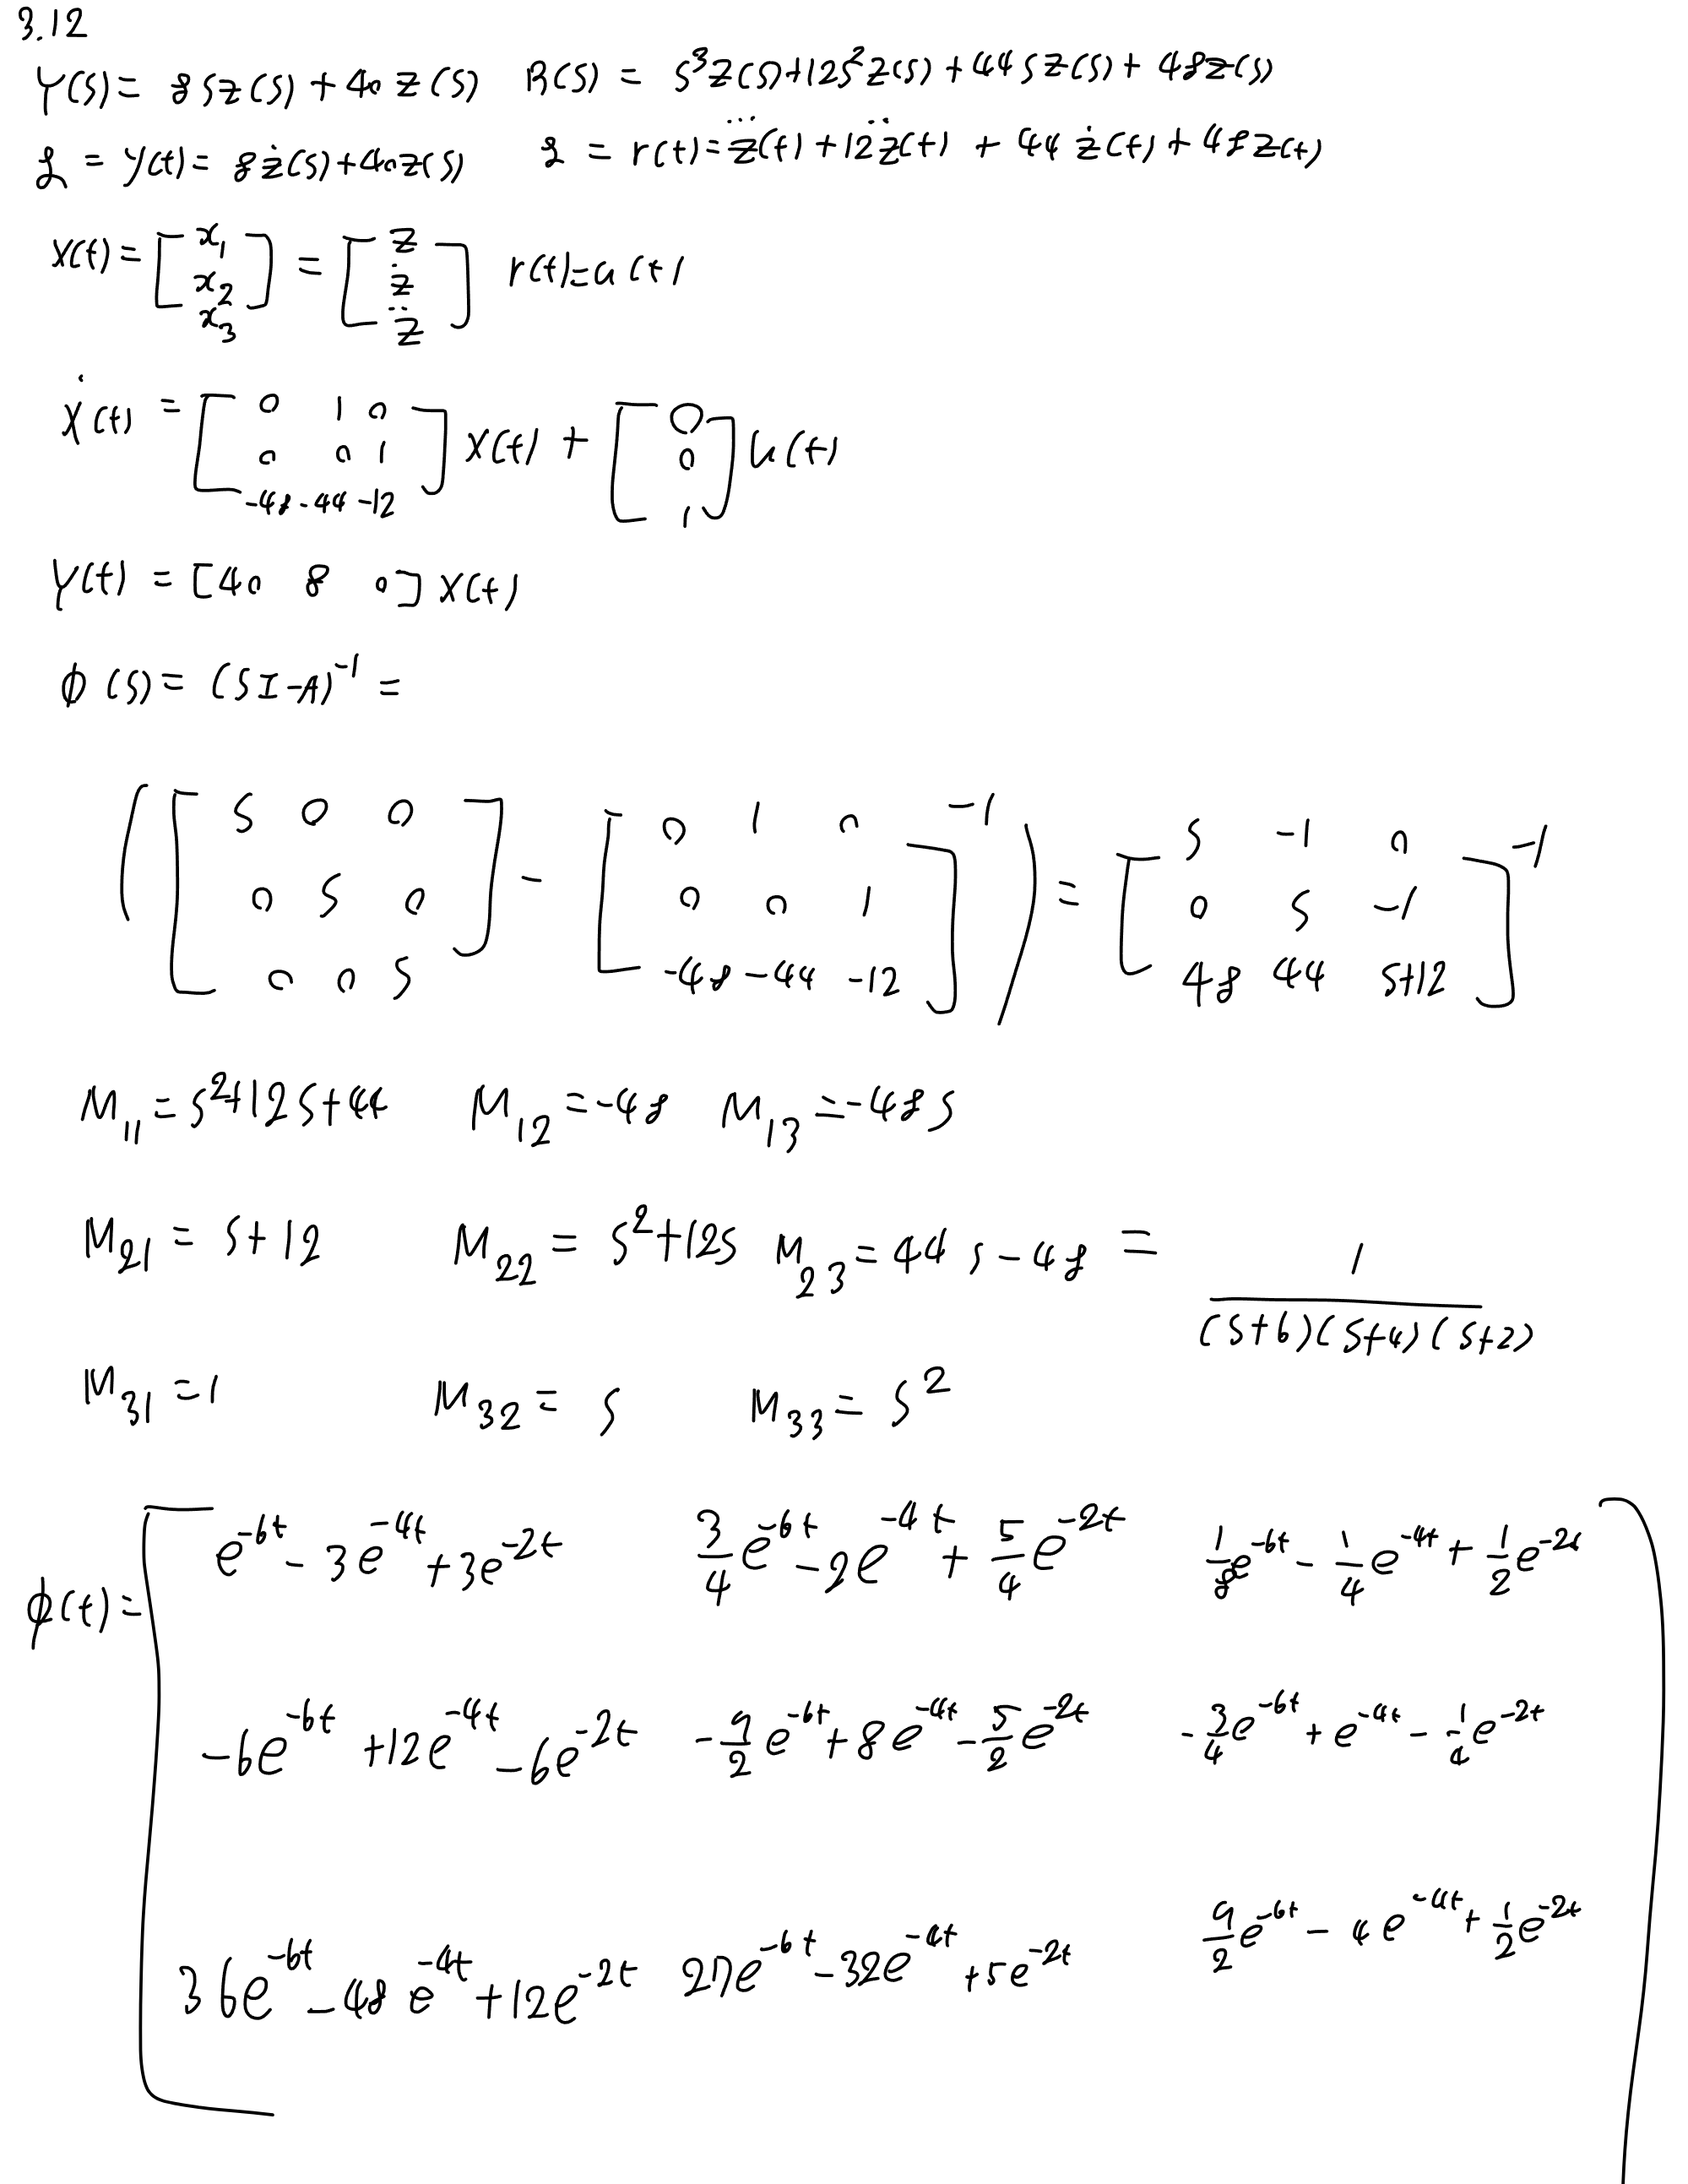 3.12
Y(s) = 8sz(s) + 40z(s) R(s) = s³z(s)+12s²z(s) + 44sz(s) + 48z(s)
ℒ = y(t) = 8ż(s)+40z(s) ℒ = r(t) = z⃛(t) + 12z̈(t) + 44ż(t) + 48z(t)
x(t) = [x₁ x₂ x₃] = [z ż z̈] r(t)=u(t)
ẋ(t) = [0 1 0
0 0 1
-48 -44 -12] x(t) + [0 0 1] u(t)
y(t) = [40 8 0] x(t)
ϕ(s) = (sI-A)⁻¹ =
([s 0 0] - [0 1 0]⁻¹) = [s -1 0]⁻¹
0 s 0 0 0 1 0 s -1
0 0 s -48 -44 -12 48 44 s+12
M₁₁ = s²+12s+44 M₁₂ = -48 M₁₃ = -48s
M₂₁ = s+12 M₂₂ = s²+12s M₂₃ = 44s-48 = 1/((s+6)(s+4)(s+2))
M₃₁ = 1 M₃₂ = s M₃₃ = s²
ϕ(t) = [e^-6t - 3e^-4t + 3e^-2t 3/4 e^-6t - 2e^-4t + 5/4 e^-2t 1/8 e^-6t - 1/4 e^-4t + 1/2 e^-2t
-6e^-6t + 12e^-4t - 6e^-2t -9/2 e^-6t + 8e^-4t - 5/2 e^-2t -3/4 e^-6t + e^-4t - 1/4 e^-2t
36e^-6t - 48e^-4t + 12e^-2t 27e^-6t - 32e^-4t + 5e^-2t 9/2 e^-6t - 4e^-4t + 1/2 e^-2t]